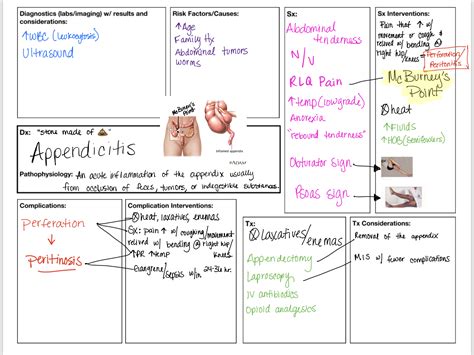 Diagnostics (labs/imaging) w/ results and
considerations:
↑WBC (leukocytosis)
Ultrasound
Risk Factors/Causes:
↑Age
Family Hx
Abdominal tumors
worms
Sx:
Abdominal
tenderness
N/V
RLQ Pain
↑temp (lowgrade)
Anorexia
"rebound tenderness"
Obturator sign
Psoas sign
Sx Interventions:
Pain that ↑ w/
movement or cough &
relived w/ bending @
right hip/
knees
Perforation/
Peritonitis
McBurney's
Point
heat
↑Fluids
↑HOB (semifowlers)
McBurney's
Point
Inflamed appendix
Dx: "stone made of 💩"
Appendicitis
Pathophysiology: An acute inflammation of the appendix usually
from occlusion of feces, tumors, or indegestible substances.
Complications:
Perferation
Peritinosis
Complication Interventions:
heat, laxatives, enemas
Sx: pain ↑ w/ coughing/movement
relived w/ bending @ right hip/
knees
↑PR ↑temp
Gangrene/sepsis w/in 24-36 hr.
Tx:
Laxatives/
enemas
Appendectomy
Laproscopy
IV antibiotics
Opioid analgesics
Tx Considerations:
Removal of the appendix
MIS w/ fewer complications